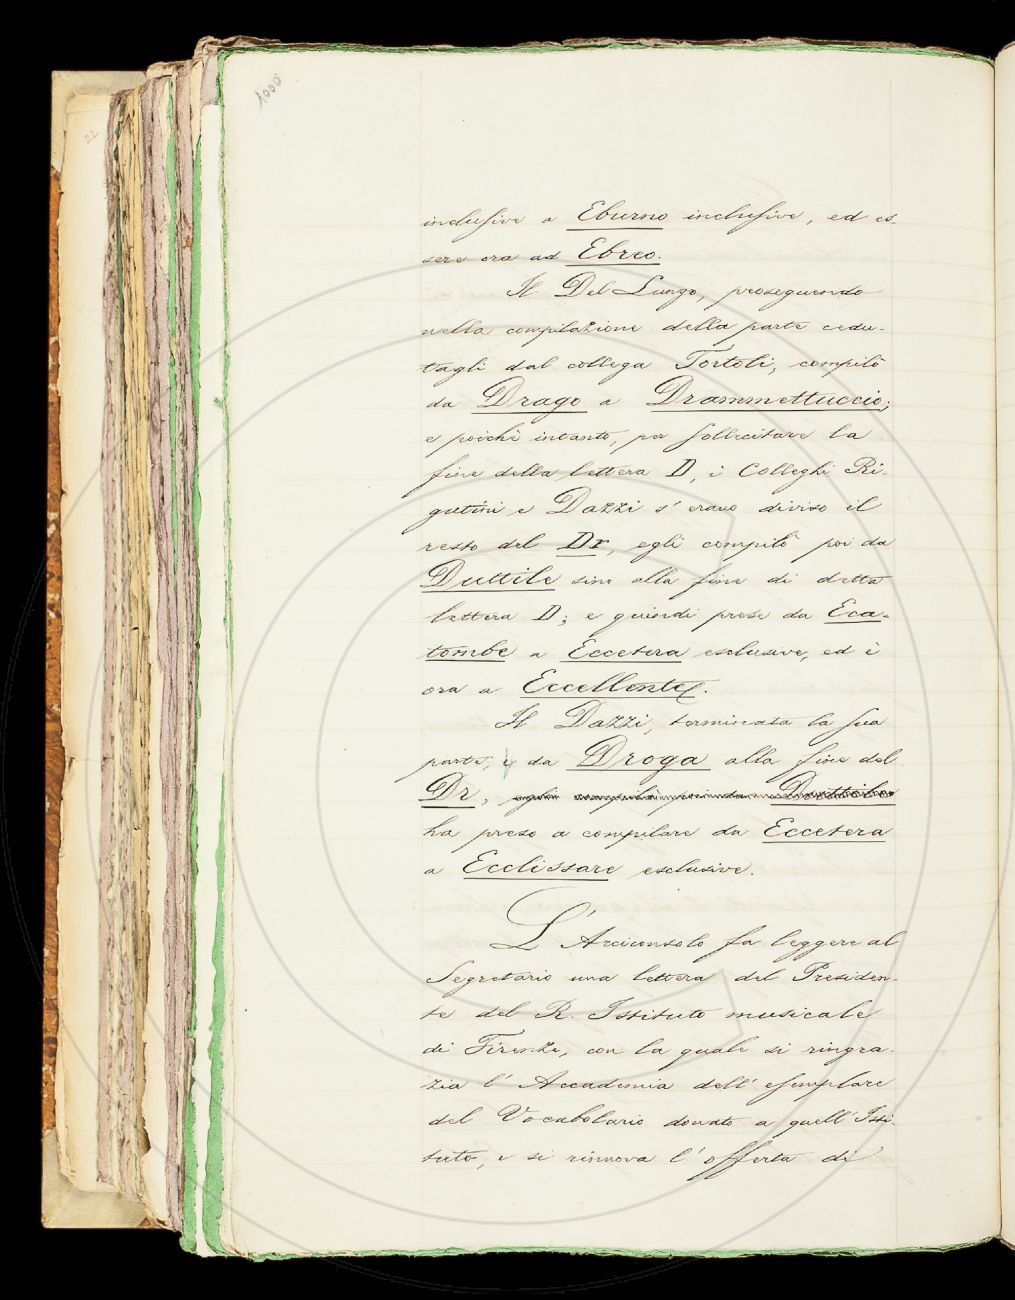 1000
22
inclusive a Eburno inclusive, ed es-
sere ora ad Ebreo.
Il Del Lungo, proseguendo
nella compilazione della parte cedu-
tagli dal collega Tortoli, compilò
da Drago a Drammettuccio;
e poichè intanto, per sollecitare la
fine della lettera D, i Colleghi Ri-
gutini e Dazzi s'erano diviso il
resto del Dr, egli compilò poi da
Duttile sino alla fine di detta
lettera D; e quindi prese da Eca-
tombe a Eccetera esclusive, ed è
ora a Eccellente.
Il Dazzi, terminata la sua
parte, da Droga alla fine del
Dr, egli compilò poi da Duttile
ha preso a compilare da Eccetera
a Ecclissare esclusive.
L'Arciconsolo fa leggere al
Segretario una lettera del Presiden-
te del R. Istituto musicale
di Firenze, con la quale si ringra-
zia l'Accademia dell'esemplare
del Vocabolario donato a quell'Isti-
tuto, e si rinnova l'offerta di